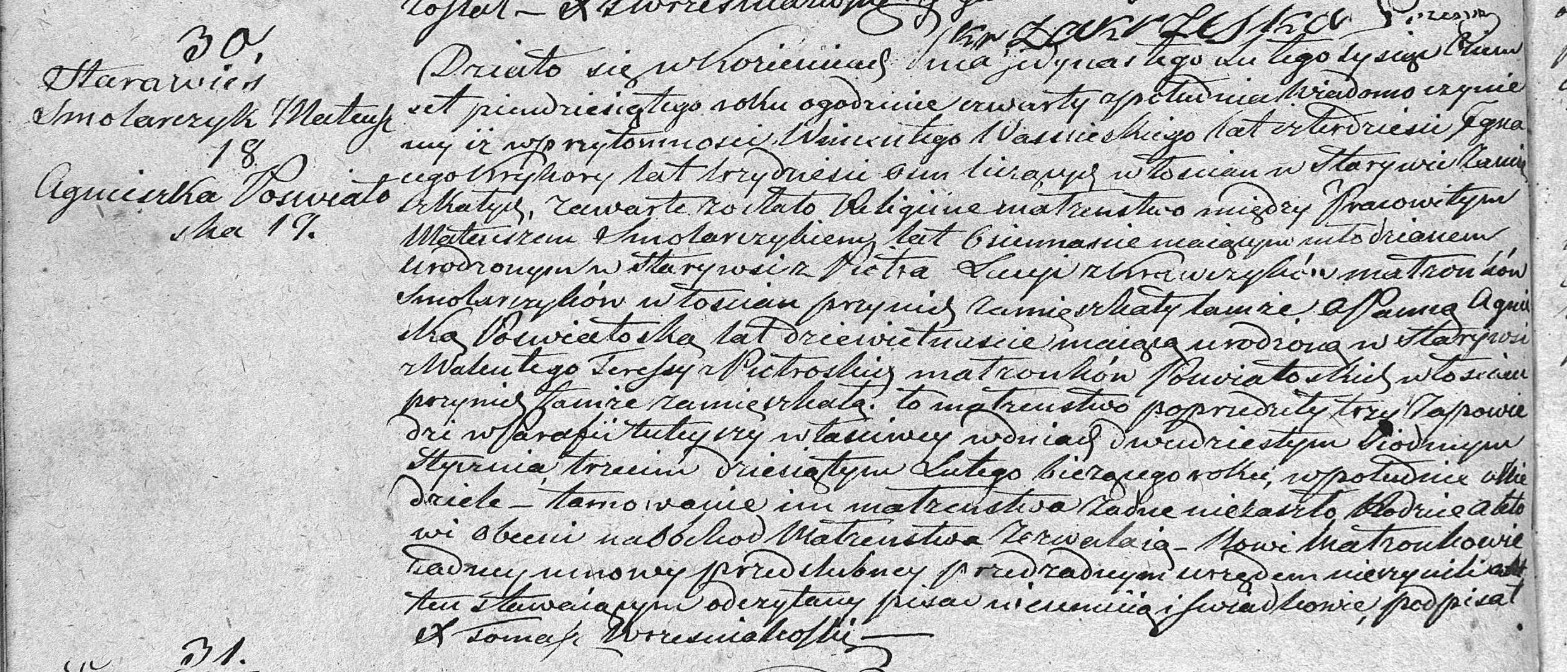 został – X
30.
Starawieś
Smolarczyk Mateusz
18
Agnieszka Poswiato
ska 19.
Działo się w Kozienicach dnia jedynastego Lutego tysiąc Osiem
set piendziesiątego roku o godzinie czwarty z południa wiadomo czynie
my iż w przytomnosci Wincentego lat czterdziesci, Igna
cego lat trzydziesci osm liczących włoscian w Starywsi Zamie
szkałych, zawarte zostało Religijne małzenstwo między Pracowitym
Mateuszem Smolarczykiem, lat Osiemnascie maiącym młodzianem
urodzonym w Starywsi z Piotra Lucyi z Krawczyków małzonków
Smolarczyków włoscian przynich zamięszkały tamże, a Panną Agnie
ską Poswiatoską lat dziewietnascie maiącą urodzoną w Starywsi
z Walentego Teressy z Pietroskich małzonków Poswiatoskich włoscian
przynich tamże zamieszkałą. to małzenstwo poprzedziły trzy Zapowie
dzi w Parafii tuteyszy własciwey w dniach dwudziestym Siodmym
Stycznia, trzecim dziesiątym Lutego bieżącego roku, w południe w Nie
dziele – tamowanie im małzenstwa Zadne niezaszło Rodzice
wi obecni na Obchod Małzenstwa Zezwalaią – Nowi Małzonkowie
Zadney umowy przedslubney przed zadnym urzędem nieczynili akt
ten stawaiącym odczytany pisac nieumiią i swiadkowie, podpisał
X Tomasz Wrzesniakoski –
31.